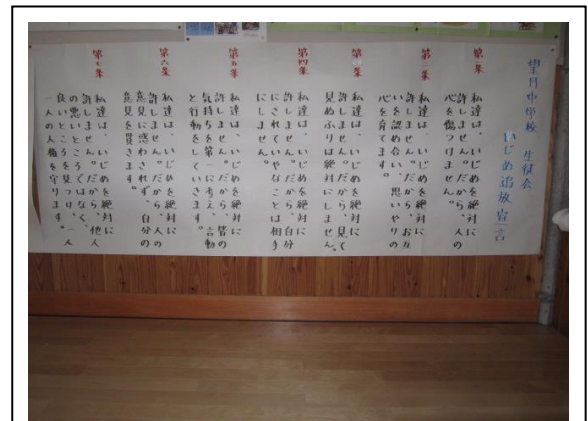 望月中学校 生徒会
いじめ追放宣言
第一条
私達は、いじめを絶対に
許しません。だから、人の
心を傷つけません。
第二条
私達は、いじめを絶対に
許しません。だから、お互
いを認め合い、思いやりの
心を育てます。
第三条
私達は、いじめを絶対に
許しません。だから、見て
見ぬふりは絶対にしません。
第四条
私達は、いじめを絶対に
許しません。だから、自分
にされていやなことは相手
にしません。
第五条
私達は、いじめを絶対に
許しません。だから、皆の
気持ちを第一に考え、言動
と行動をしていきます。
第六条
私達は、いじめを絶対に
許しません。だから、人の
意見に惑わされず、自分の
意見を貫きます。
第七条
私達は、いじめを絶対に
許しません。だから、他人
の悪いところではなく、
良いところを見つけ、一人
一人の人権を守ります。